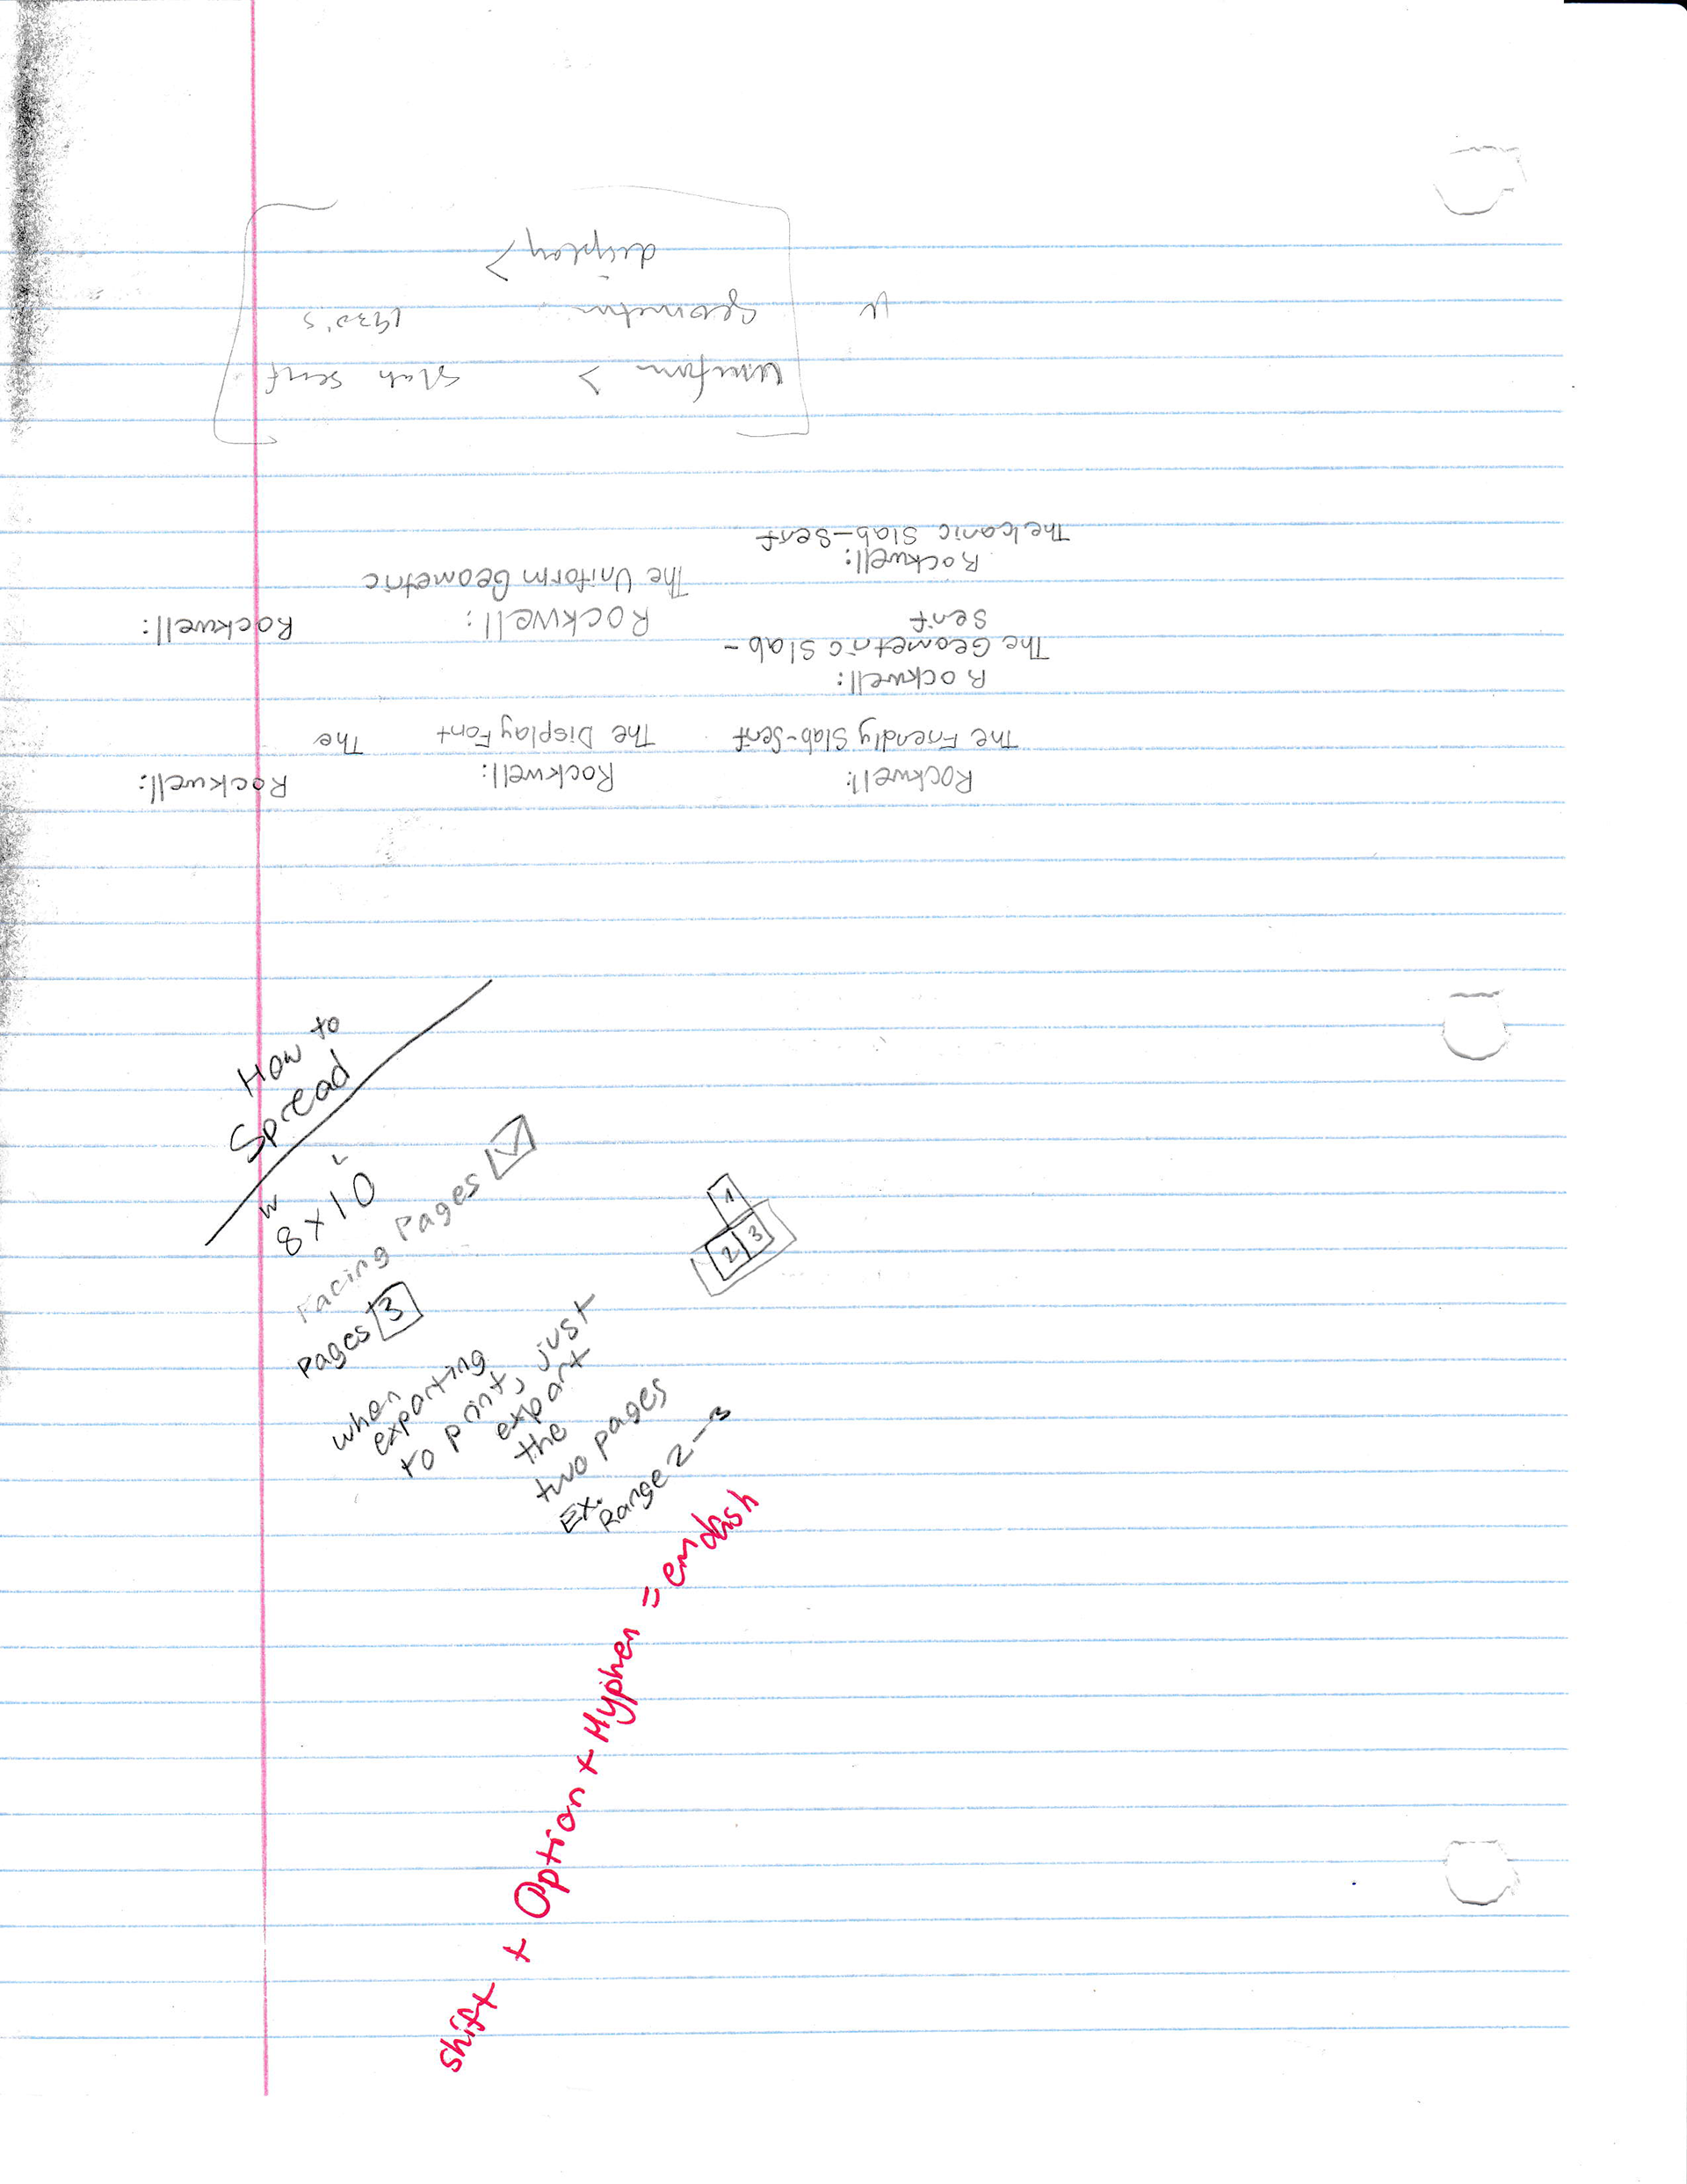 How to
Spread
W L
8 x 10
Facing Pages
Pages 3
1
2 3
when
exporting
to print, just
export
the
two pages
Ex.
Range 2-3
shift + Option + Hyphen = emdash
Rockwell: Rockwell: Rockwell:
The Friendly Slab-Serif The Display Font The
Rockwell:
The Geometric Slab-
Serif
Rockwell: Rockwell:
The Uniform Geometric
Rockwell:
The Iconic Slab-Serif
uniform > slab serif
geometric 1930's
display >